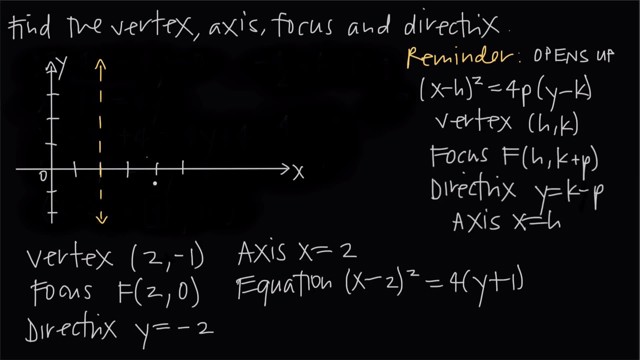 Find the vertex, axis, focus and directrix.
Reminder: OPENS UP
(x-h)² = 4p(y-k)
Vertex (h,k)
Focus F(h, k+p)
Directrix y=k-p
Axis x=h
y
0
x
Vertex (2,-1) Axis x=2
Focus F(2,0) Equation (x-2)² = 4(y+1)
Directrix y=-2